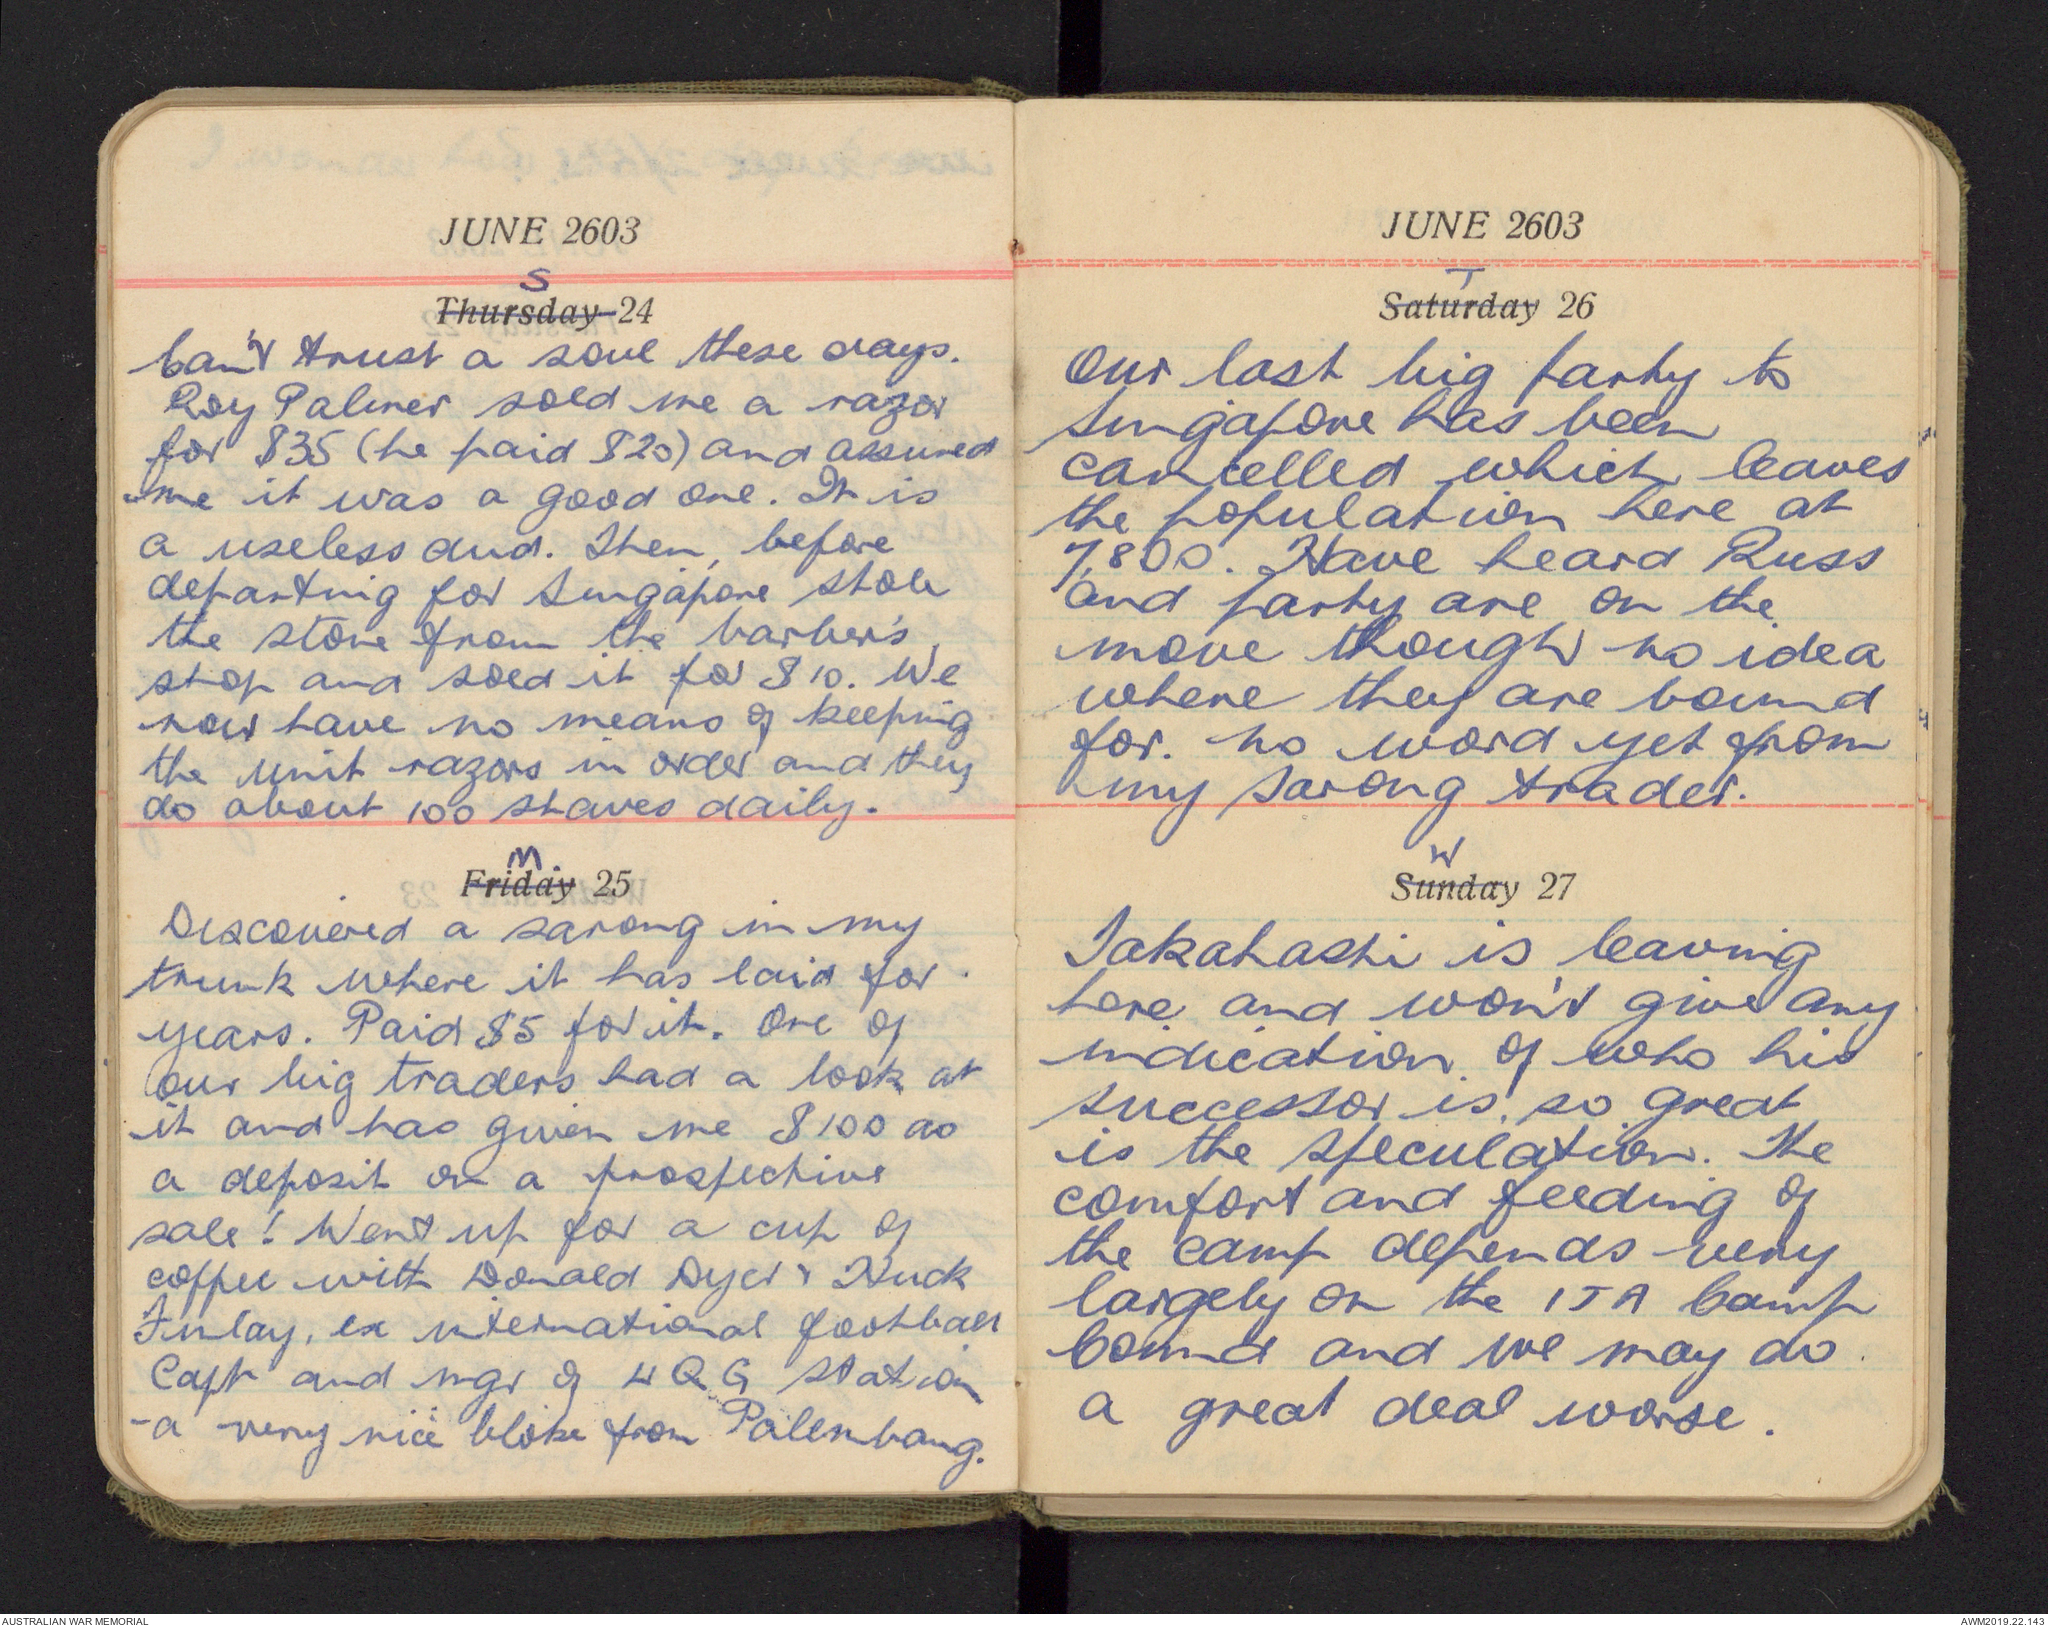 JUNE 2603
S
Thursday 24
Can't trust a soul these days.
Roy Palmer sold me a razor
for $35 (he paid $20) and assured
me it was a good one. It is
a useless dud. Then, before
departing for Singapore stole
the stone from the barber's
shop and sold it for $10. We
now have no means of keeping
the unit razors in order and they
do about 100 shaves daily.
M
Friday 25
Discovered a sarong in my
trunk where it has laid for
years. Paid $5 for it. One of
our big traders had a look at
it and has given me $100 as
a deposit on a prospective
sale! Went up for a cup of
coffee with Donald Dyer & Huck
Finlay, ex international football
Capt and mgr of 4 Q G station
- a very nice bloke from Palembang.
JUNE 2603
T
Saturday 26
Our last big party to
Singapore has been
cancelled which leaves
the population here at
7,800. Have heard Russ
and party are on the
move though no idea
where they are bound
for. No word yet from
my sarong trader.
W
Sunday 27
Takahashi is leaving
here and won't give any
indication of who his
successor is, so great
is the speculation. The
comfort and feeding of
the camp depends very
largely on the ITA Camp
Comnd and we may do
a great deal worse.
AUSTRALIAN WAR MEMORIAL
AWM2019.22.143